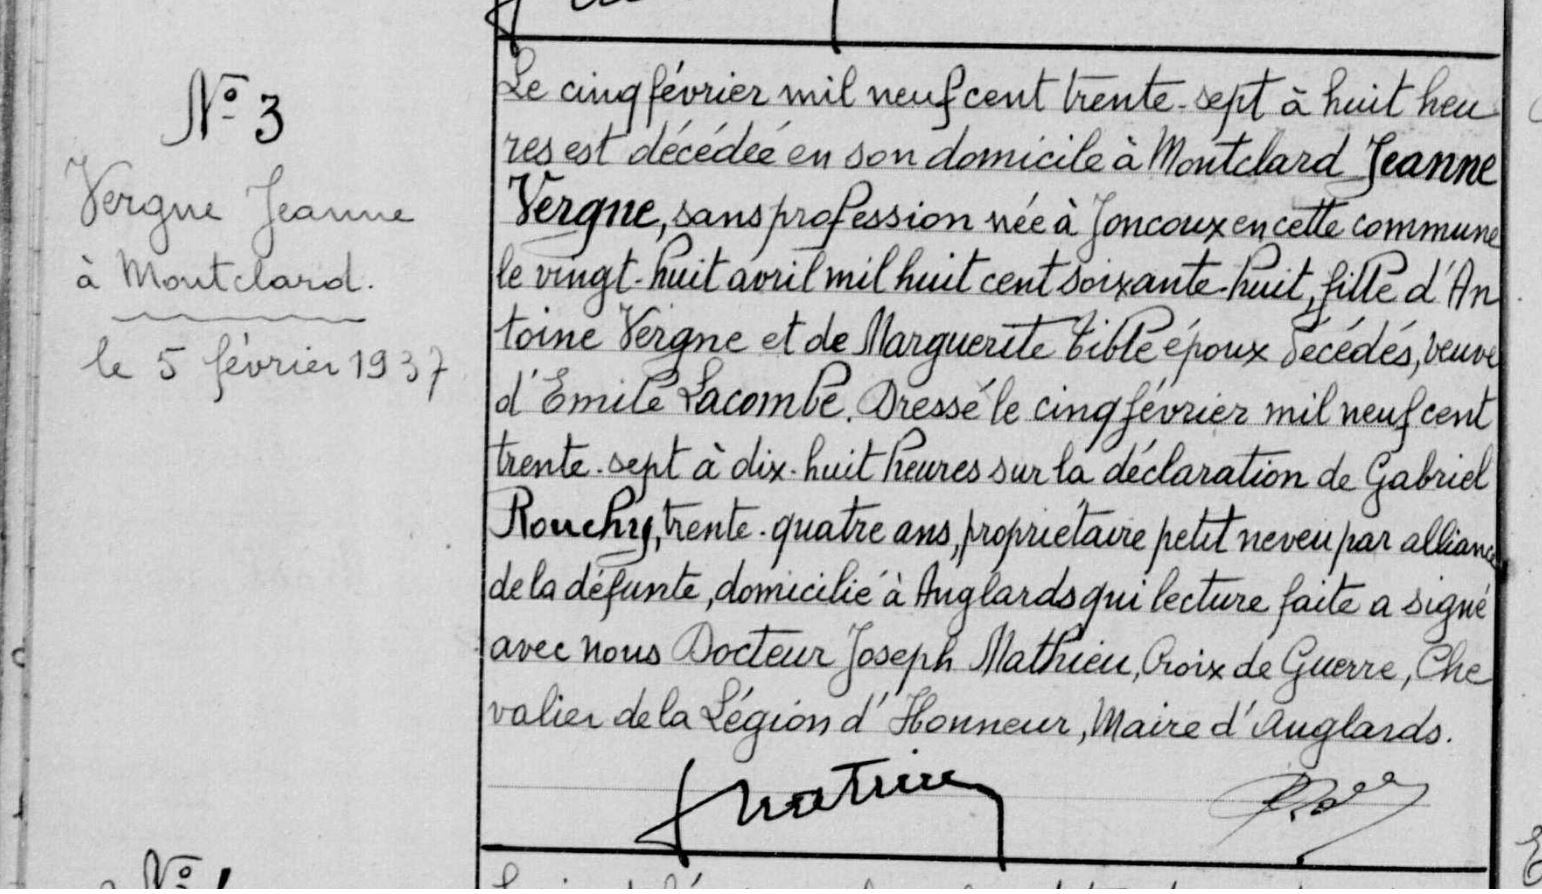 N° 3
Vergne Jeanne
à Montclard.
le 5 février 1937
Le cinq février mil neuf cent trente-sept à huit heu
res est décédée en son domicile à Montclard Jeanne
Vergne, sans profession née à Joncoux en cette commune
le vingt-huit avril mil huit cent soixante-huit, fille d'An
toine Vergne et de Marguerite Tible époux décédés, veuve
d'Emile Lacombe. Dressé le cinq février mil neuf cent
trente-sept à dix-huit heures sur la déclaration de Gabriel
Rouchy, trente-quatre ans, propriétaire petit neveu par alliance
de la défunte, domicilié à Anglards qui lecture faite a signé
avec nous Docteur Joseph Mathieu, Croix de Guerre, Che
valier de la Légion d'Honneur, Maire d'Anglards.
N°